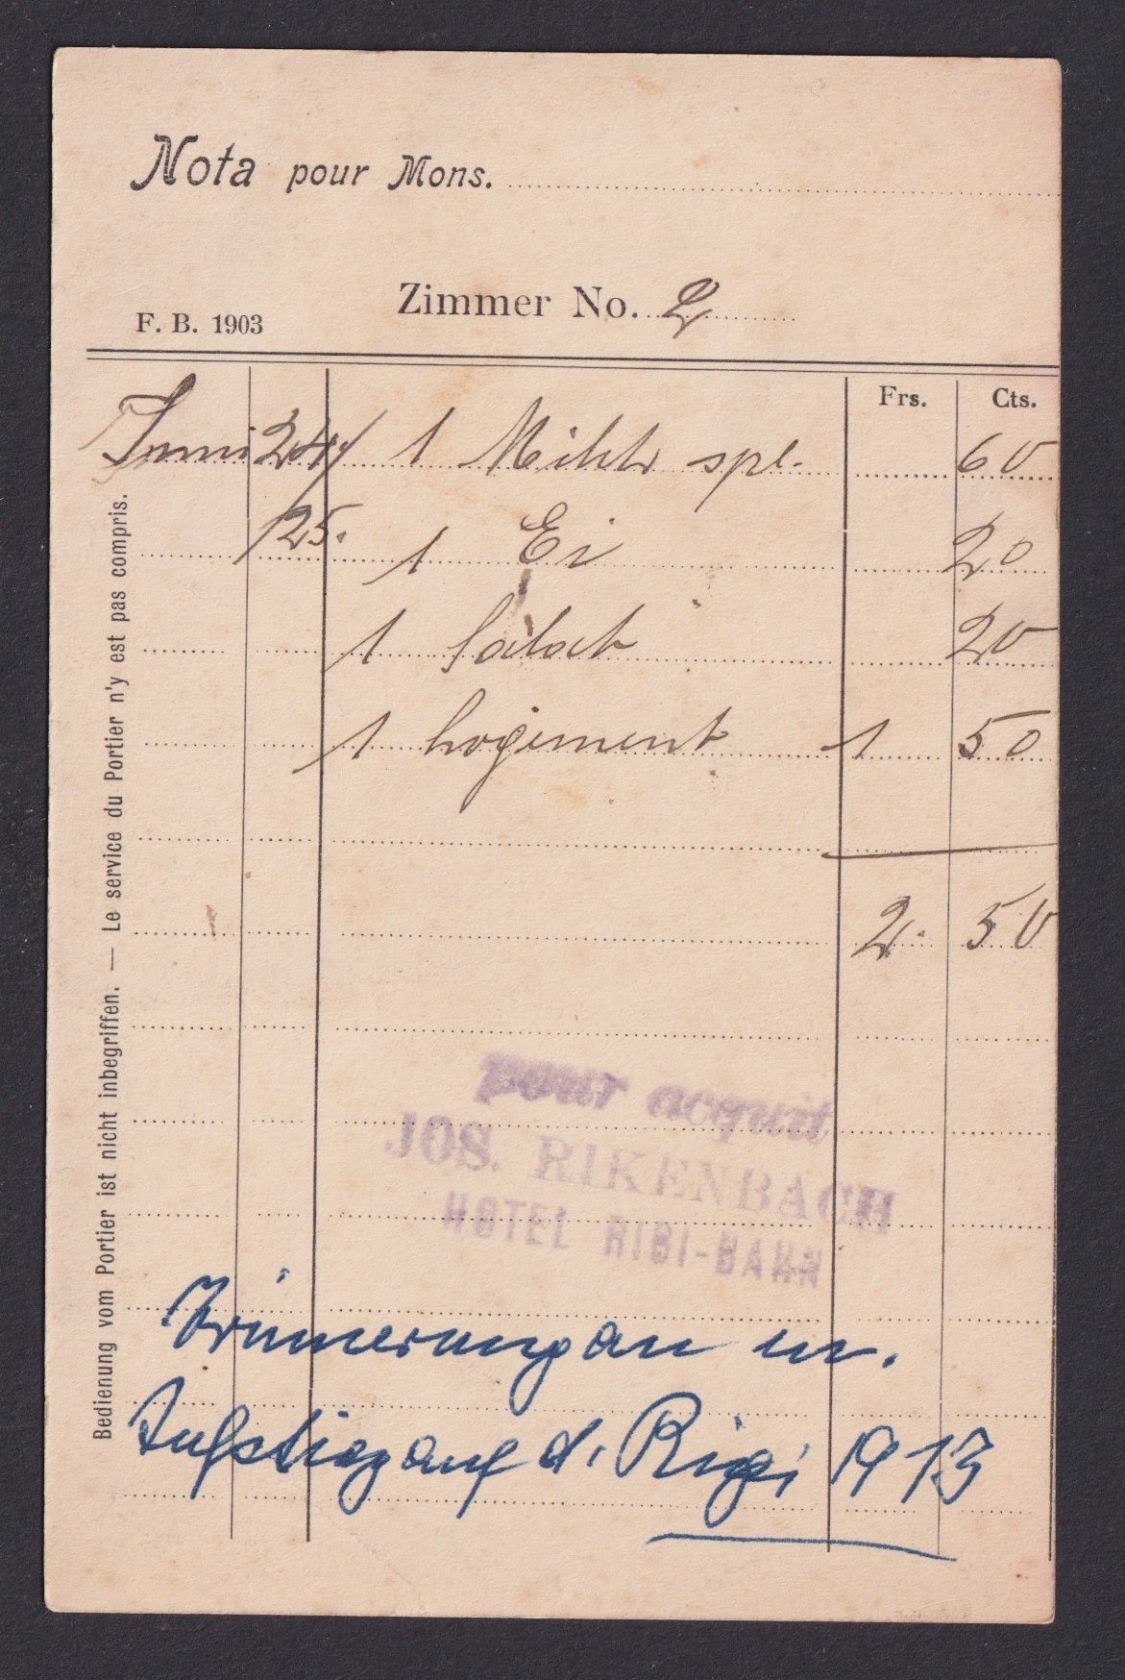 Nota pour Mons.
Zimmer No. 2
F. B. 1903
Frs. Cts.
Juni 24. 1 Milch spl. 60
25. 1 Ei 20
1 Salat 20
1 Logement 1 50
2. 50
Bedienung vom Portier ist nicht inbegriffen. — Le service du Portier n'y est pas compris.
pour acquit
JOS. RIKENBACH
HOTEL RIGI-BAHN
Erinnerung an m.
Aufstieg auf d. Rigi 1913